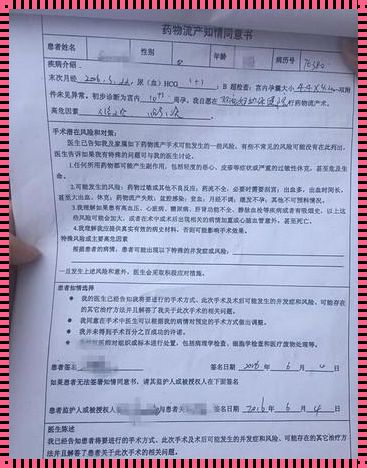 药物流产知情同意书
患者姓名 性别 女 年龄 病历号
疾病介绍
末次月经 2016.5. 尿（血）HCG（+），B 超检查：宫内孕囊大小 双附
件未见异常，初步诊断为宫内 周孕，我自愿在 行药物流产术。
高危因素
手术潜在风险和对策：
医生已告知我及家属如下药物流产手术可能发生的一些风险，有些不常见的风险可能没有在此列出，
医生告诉如果我有特殊的问题可与我的医生讨论。
1.任何所用药物都可能产生副作用，包括轻度的恶心、皮疹等症状或严重的过敏性休克，甚至危及生
命。
2.可能发生的风险：药物过敏或其他不良反应；药流不全；必要时需要刮宫；出血多，出血时间长，
甚至大出血、休克；药物流产失败；盆腔感染；贫血；月经不调；继发不孕；其他不可预料情况。
3.我理解如果患有高血压、心脏病、糖尿病、肝肾功能不全、静脉血栓等疾病或者有吸烟史，以上这
些风险可能会加大，或者在术中或术后出现相关的病情加重或心脑血管意外，甚至死亡。
4.我理解我应提供真实有效的病史材料，否则可能影响手术效果。
特殊风险或主要高危因素
根据患者的病情，患者可能出现以下特殊的并发症或风险：
一旦发生上述风险和意外，医生会采取积极应对措施。
患者知情选择
● 我的医生已经告知我将要进行的手术方式、此次手术及术后可能发生的并发症和风险、可能存在
的其它治疗方法并且解答了我关于此次手术的相关问题。
● 我同意在手术中医生可以根据我的病情对预定的手术方式做出调整。
● 我并未得到手术百分之百成功的许诺。
医师对组织或标本进行处置，包括病理学检查、细胞学检查和医疗废物处理等。
患者签名 签名日期 2016 年 6 月 4 日
如果患者无法签署知情同意书，请其监护人或被授权人在下面签名
患者监护人或被授权人 与患者关 签名日期 2016 年 6 月 4 日
医生陈述
我已经告知患者将要进行的手术方式、此次手术及术后可能发生的并发症和风险、可能存在的其它治疗方
法并且解答了患者关于此次手术的相关问题。